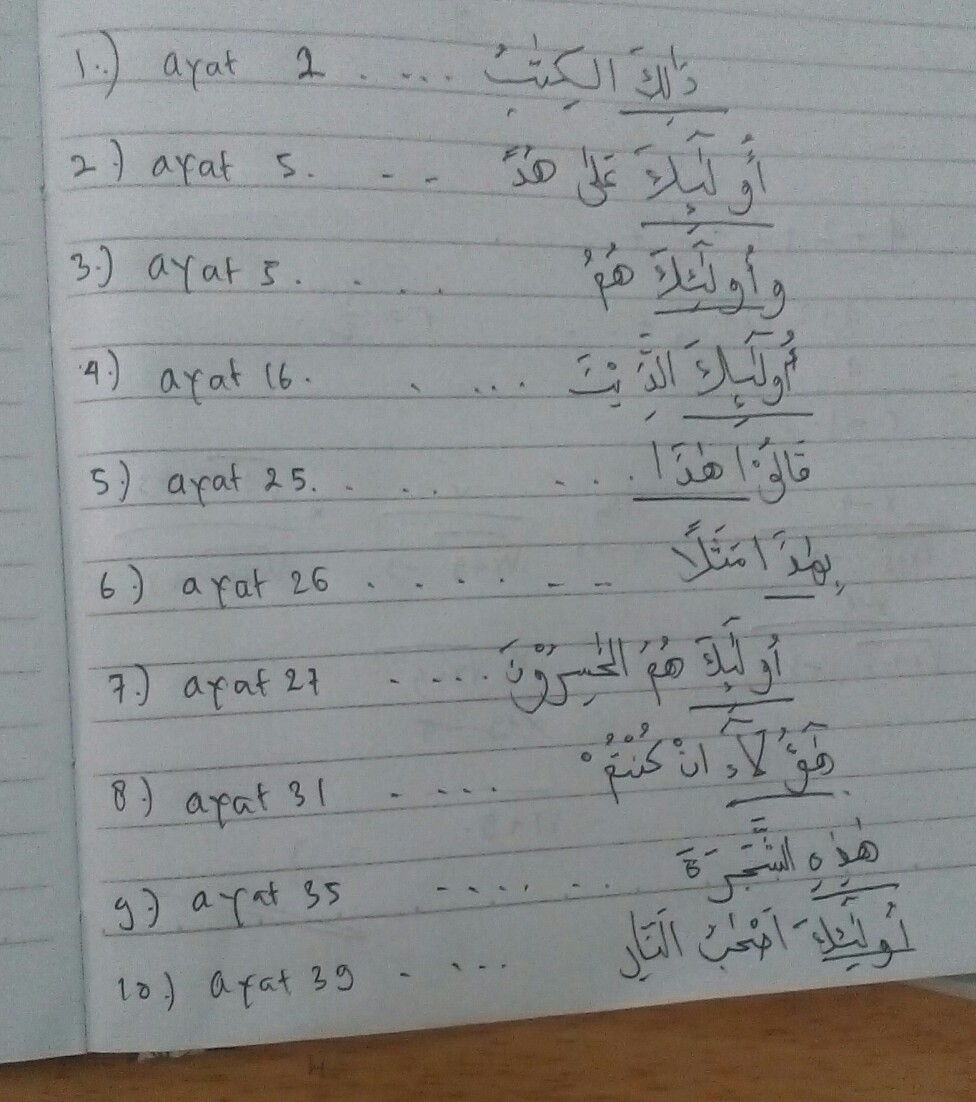 1.) ayat 2 . ... ذٰلِكَ الكِتٰبُ
2.) ayat 5. - - أُولٰٓئِكَ عَلٰى هُدً
3.) ayat 5. . .. وأُولٰٓئِكَ هُمُ
4.) ayat 16. . ... أُولٰٓئِكَ الَّذِيْنَ
5.) ayat 25. . .. ... قَالُوْا هٰذَا
6.) ayat 26 . . . . - -- بِهٰذَا مَثَلًا
7.) ayat 27 - ...... أُولٰٓئِكَ هُمُ الْخٰسِرُوْنَ
8.) ayat 31 - .... هٰٓؤُلَآءِ انْ كُنْتُمْ
9.) ayat 35 -.... .. هٰذِهِ الشَّجَرَةَ
10.) ayat 39 - .... أُولٰٓئِكَ اَصْحٰبُ النَّارِ